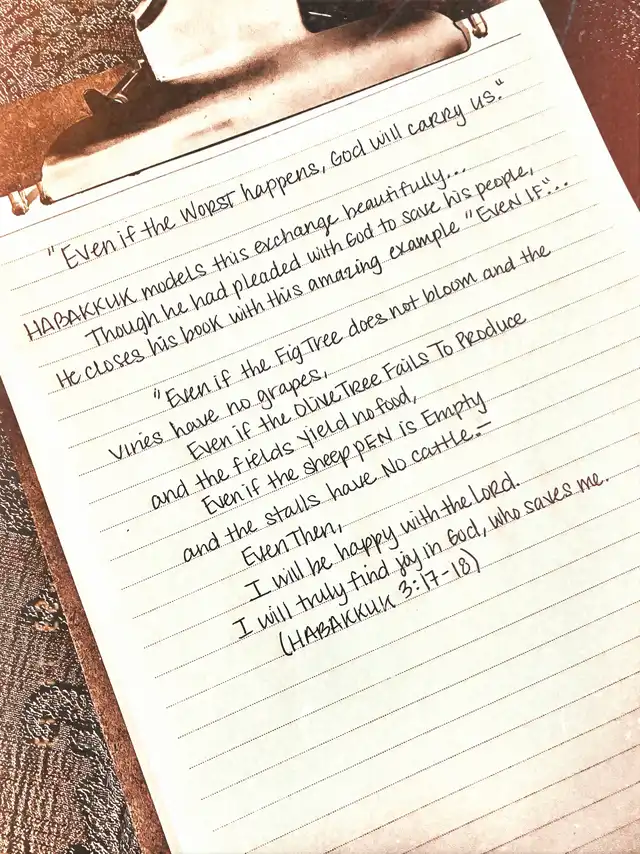 "Even if the WORST happens, God will carry us."
HABAKKUK models this exchange beautifully...
Though he had pleaded with God to save his people,
He closes his book with this amazing example "EVEN IF"...
"Even if the Fig Tree does not bloom and the
vines have no grapes,
Even if the Olive Tree Fails To Produce
and the fields yield no food,
Even if the sheep pen is Empty
and the stalls have No cattle.–
Even Then,
I will be happy with the Lord.
I will truly find joy in God, who saves me.
(HABAKKUK 3:17-18)